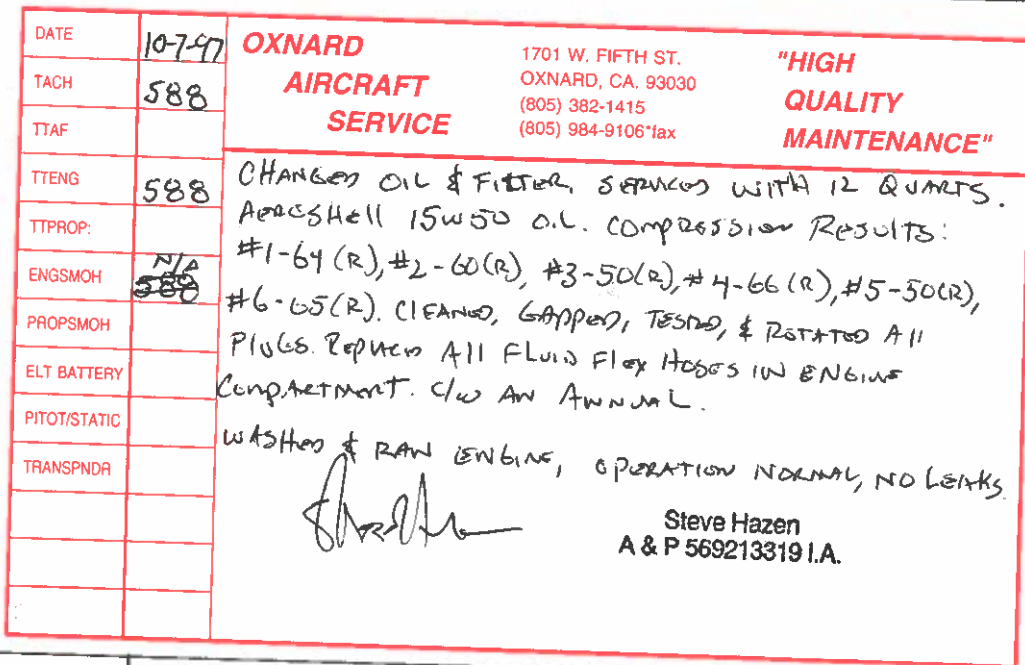 DATE 10-7-97
TACH 588
TTAF
TTENG 588
TTPROP:
ENGSMOH N/A 588
PROPSMOH
ELT BATTERY
PITOT/STATIC
TRANSPNDR
OXNARD
AIRCRAFT
SERVICE
1701 W. FIFTH ST.
OXNARD, CA. 93030
(805) 382-1415
(805) 984-9106*fax
"HIGH
QUALITY
MAINTENANCE"
CHANGED OIL & FILTER, SERVICED WITH 12 QUARTS.
AEROSHELL 15W50 OIL. COMPRESSION RESULTS:
#1-64 (R), #2-60(R), #3-50(R), #4-66(R), #5-50(R),
#6-65(R). CLEANED, GAPPED, TESTED, & ROTATED All
PLUGS. REPLACED All FLUID FLEX HOSES IN ENGINE
COMPARTMENT. C/W AN ANNUAL.
WASHED & RAN ENGINE, OPERATION NORMAL, NO LEAKS
Steve Hazen
A & P 569213319 I.A.